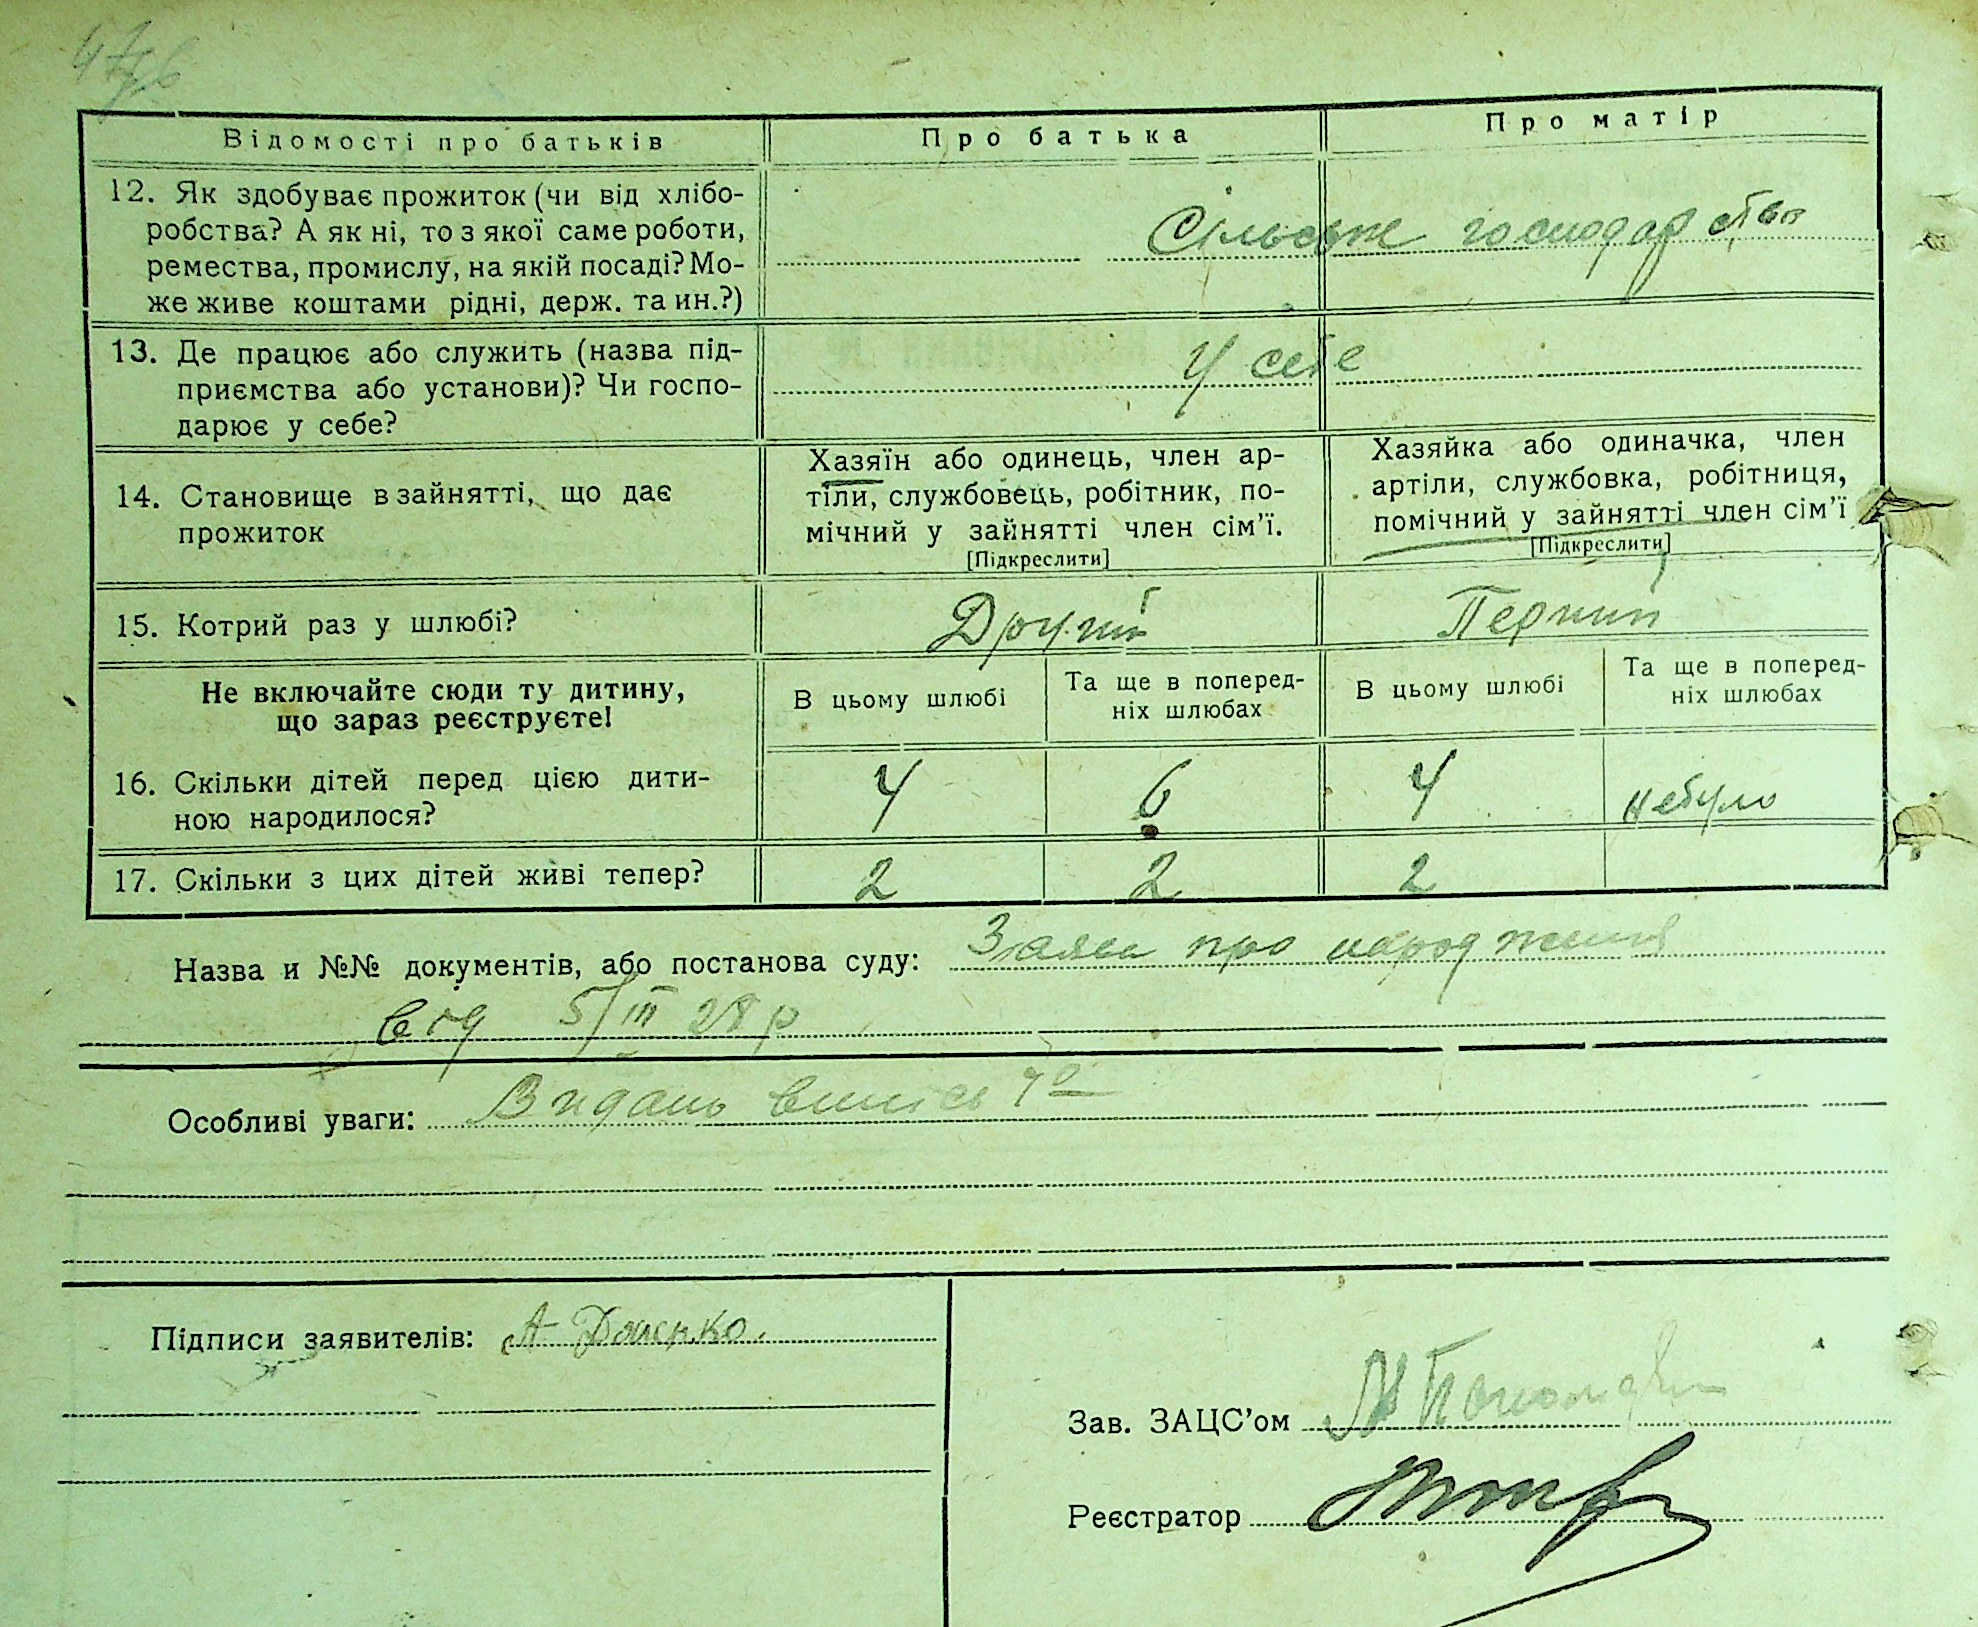 Відомості про батьків
Про батька
Про матір
12. Як здобуває прожиток (чи від хлібо-
робства? А як ні, то з якої саме роботи,
ремества, промислу, на якій посаді? Мо-
же живе коштами рідні, держ. та ин.?)
Сільське господарство
13. Де працює або служить (назва під-
приємства або установи)? Чи госпо-
дарює у себе?
У себе
14. Становище в зайнятті, що дає
прожиток
Хазяїн або одинець, член ар-
тіли, службовець, робітник, по-
мічний у зайнятті член сім'ї.
[Підкреслити]
Хазяйка або одиначка, член
артіли, службовка, робітниця,
помічний у зайнятті член сім'ї
[Підкреслити]
15. Котрий раз у шлюбі?
Другий
Перший
Не включайте сюди ту дитину,
що зараз реєструєте!
В цьому шлюбі
Та ще в поперед-
ніх шлюбах
В цьому шлюбі
Та ще в поперед-
ніх шлюбах
16. Скільки дітей перед цією дити-
ною народилося?
4
6
4
небуло
17. Скільки з цих дітей живі тепер?
2
2
2
Назва и №№ документів, або постанова суду: Заява про народження
від 5/III 28 р
Особливі уваги: Видань випись
Підписи заявителів: А
Зав. ЗАЦС'ом
Реєстратор